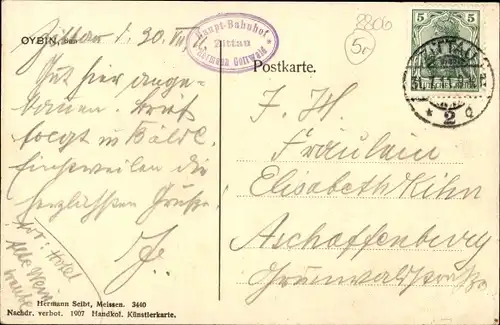 OYBIN,
Zittau d. 30. VII
Haupt-Bahnhof
Zittau
Hermann Gottwald
8806
5
ZITTAU
* 2 c
Postkarte.
Gut hier ange-
kommen. Brief
folgt in Bälde.
Einstweilen die
herzlichsten Grüße.
Adr: Hotel
Alte Wein
traube
Fräulein
Elisabeth Kihn
Aschaffenburg
Grünewaldstraße
Hermann Seibt, Meissen. 3440
Nachdr. verbot. 1907 Handkol. Künstlerkarte.